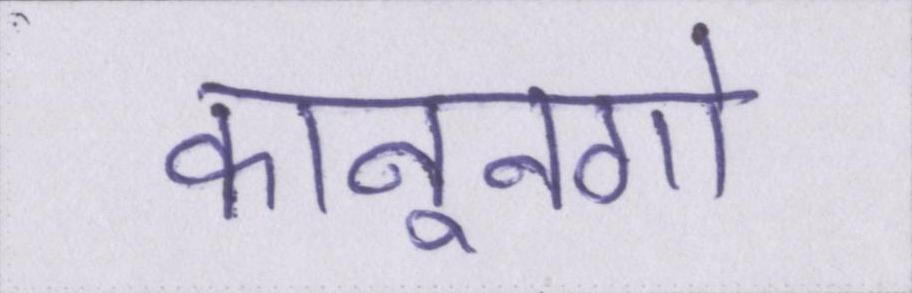 कानूनगो